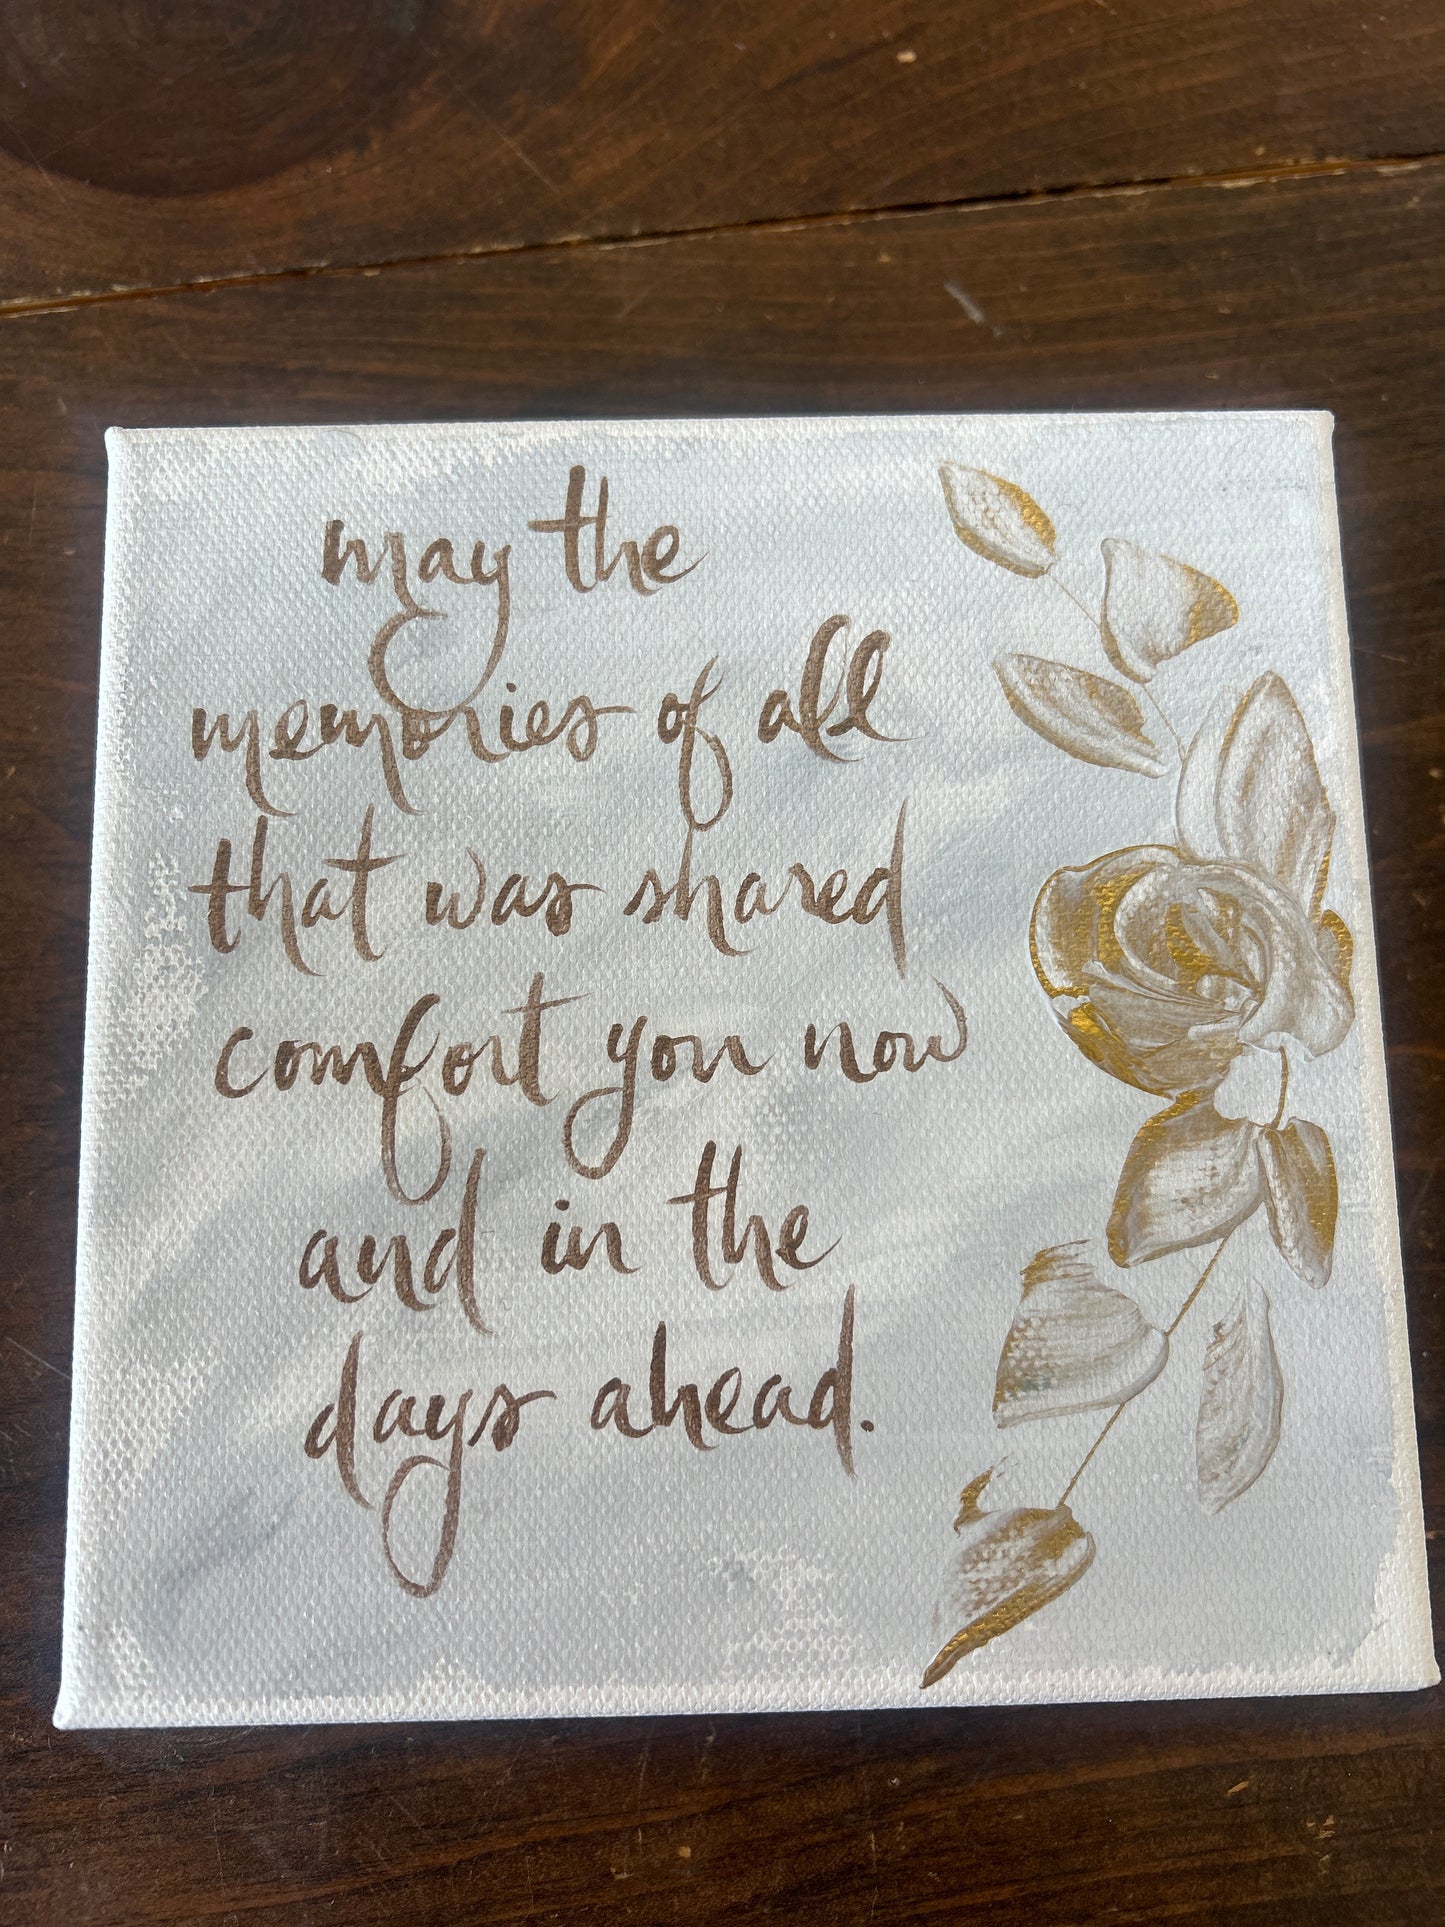 may the
memories of all
that was shared
comfort you now
and in the
days ahead.